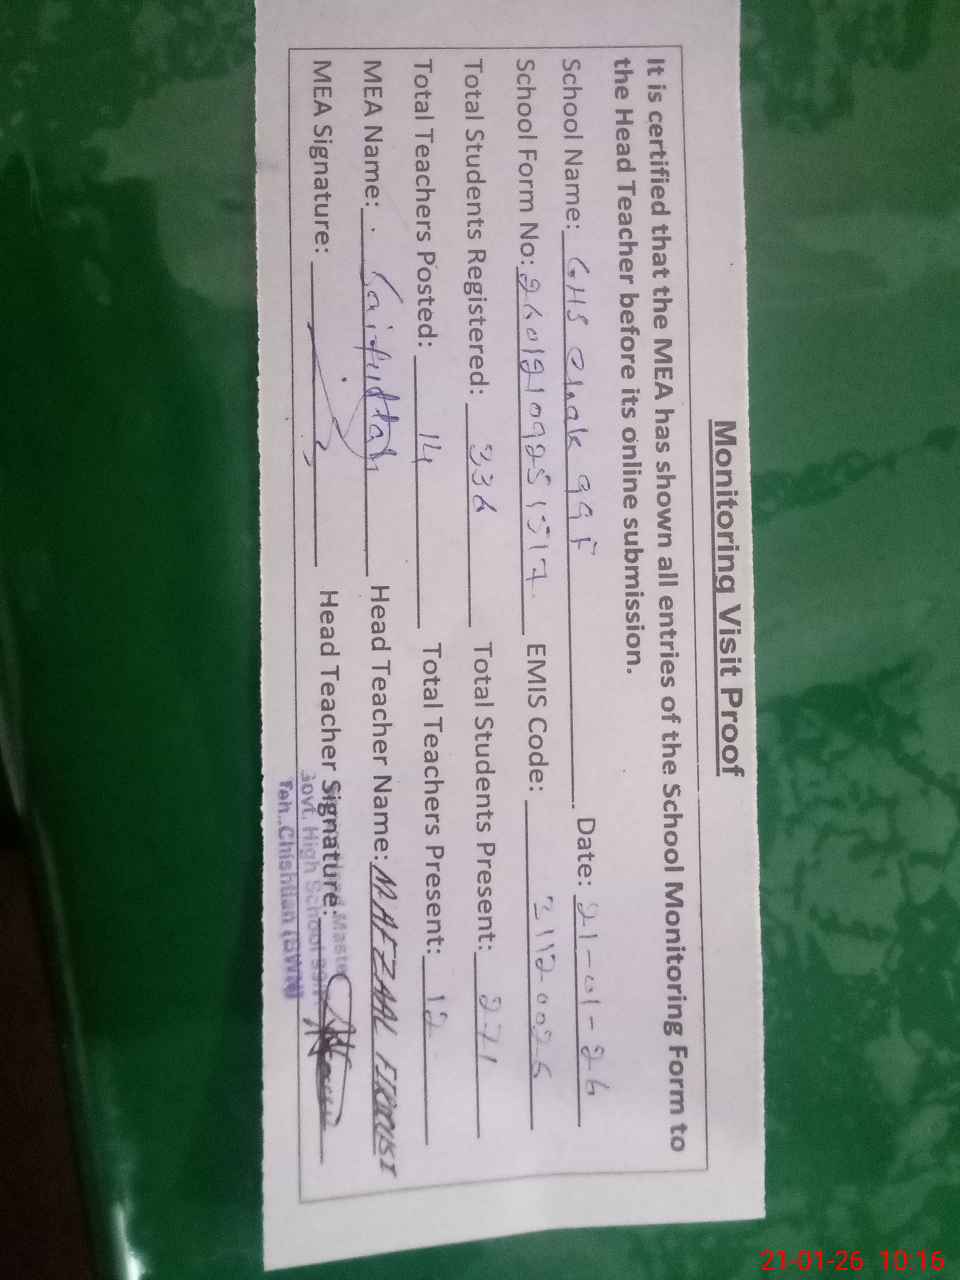 Monitoring Visit Proof
It is certified that the MEA has shown all entries of the School Monitoring Form to
the Head Teacher before its online submission.
School Name: GHS Chak 99 F Date: 21-01-26
School Form No: EMIS Code:
Total Students Registered: 336 Total Students Present: 271
Total Teachers Posted: 14 Total Teachers Present: 12
MEA Name: Saifullah Head Teacher Name: M. AFZAAL
MEA Signature: Head Teacher Signature:
Govt. High School
Teh. Chishtian (BWN)
21-01-26 10:16